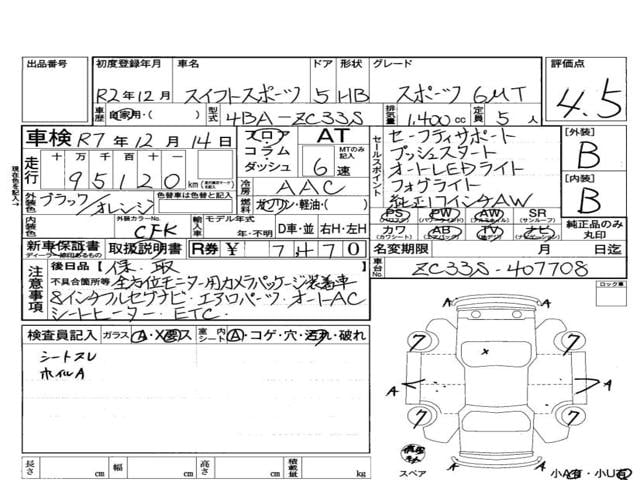 出品番号 初度登録年月 車名 ドア 形状 グレード 評価点
R2年12月 スイフトスポーツ 5 HB スポーツ 6MT 4.5
車歴 自家用・( ) 型式 4BA-ZC33S 排気量 1,400cc 定員 5人
車検 R7年12月14日
フロア コラム ダッシュ
AT MTのみ記入 6速
セールスポイント
セーフティサポート
プッシュスタート
オートLEDライト
フォグライト
純正17インチAW
[外装] B
[内装] B
現在色を記入
走行 十 万 千 百 十 一
95120 km
冷房 AAC
外装色 ブラック/オレンジ 色替車は色替と記入
燃料 ガソリン・軽油・( )
PS PW AW SR(サンルーフ)
カワ(カワシート) AB(エアバッグ) TV ナビ
純正品のみ丸印
内装色 外装カラーNo. CFK 輸入車 モデル年式 年・不明 D車・並 右H・左H
新車保証書 ディーラー捺印あるもの 取扱説明書 R券 ¥ 7,470
名変期限 月 日迄
車台No. ZC33S-407708
注意事項 後日品 (保・取
不具合箇所等 全方位モニター用カメラパッケージ装着車
8インチフルセグナビ・エアロパーツ・オートAC
シートヒーター・ETC・
ロック車
検査員記入 ガラス A・X・ス 室内シート A・コゲ・穴・汚れ・破れ
シートスレ
ホイルA
A A
7 7
A A
7 7
A A
スペア
小A有・小U有
長さ cm 幅 cm 高さ cm 積載量 kg